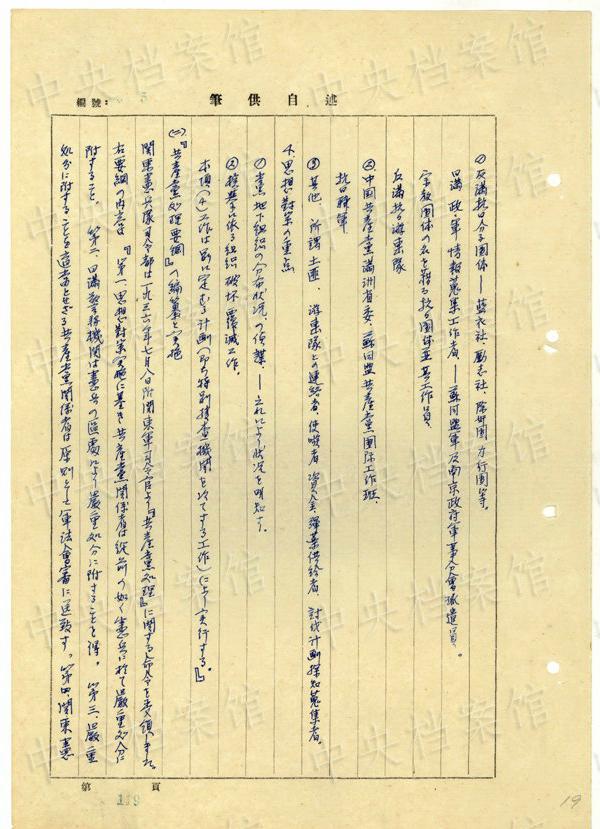 筆供自述
編號：
①反満抗日分子団体——藍衣社、励志社、除邪団、力行団等。
日満政・軍情報蒐集工作者——蘇同盟軍及南京政府軍事分会派遣員。
宗教団体の名を藉る抗日団体並其工作員、
反満抗日游撃隊
②中国共産党満洲省委、蘇同盟共産党国际工作班、
抗日聯軍
③其他、所謂土匪、游撃隊との連絡者、使嗾者、資金、弾薬供給者、討伐計劃探知蒐集者。
4 思想対策の重点
①党地下組織の分布状況の偵諜——之れにより状況を明知す。
②検挙に依る組織破坏、覆滅工作。
本項（4）工作は別に定むる計劃（即ち特別捜査機関を以てする工作）により実行する。』
(二)『共産党処理要綱』の編纂と実施
関東憲兵隊司令部は一九三六年七月八日附関東軍司令官より『共産党処理』に関する命令を受領しました。
右要綱の内容は『第一、思想対策実施に基き共産党関係者は従前の如く憲兵に於て厳重処分に
附すること。第二、日満警務機関は憲兵の区処により厳重処分に附することを得。第三、厳重
処分に附することを適当とせざる共産党関係者は原則として軍法会審に送致す。第四、関東憲
第 頁
119
19
中央档案馆